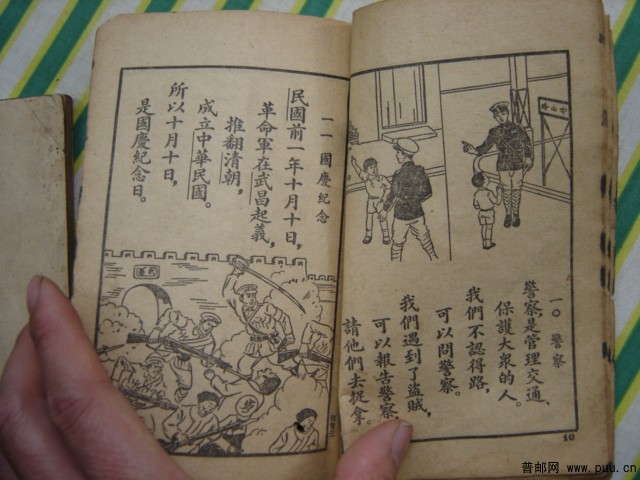 一〇 警察
警察是管理交通、
保護大衆的人。
我們不認得路，
可以問警察。
我們遇到了盜賊，
可以報告警察，
請他們去捉拿。
10
一一 國慶紀念
民國前一年十月十日，
革命軍在武昌起義，
推翻清朝，
成立中華民國。
所以十月十日，
是國慶紀念日。
武昌
普邮网 www.puu.cn